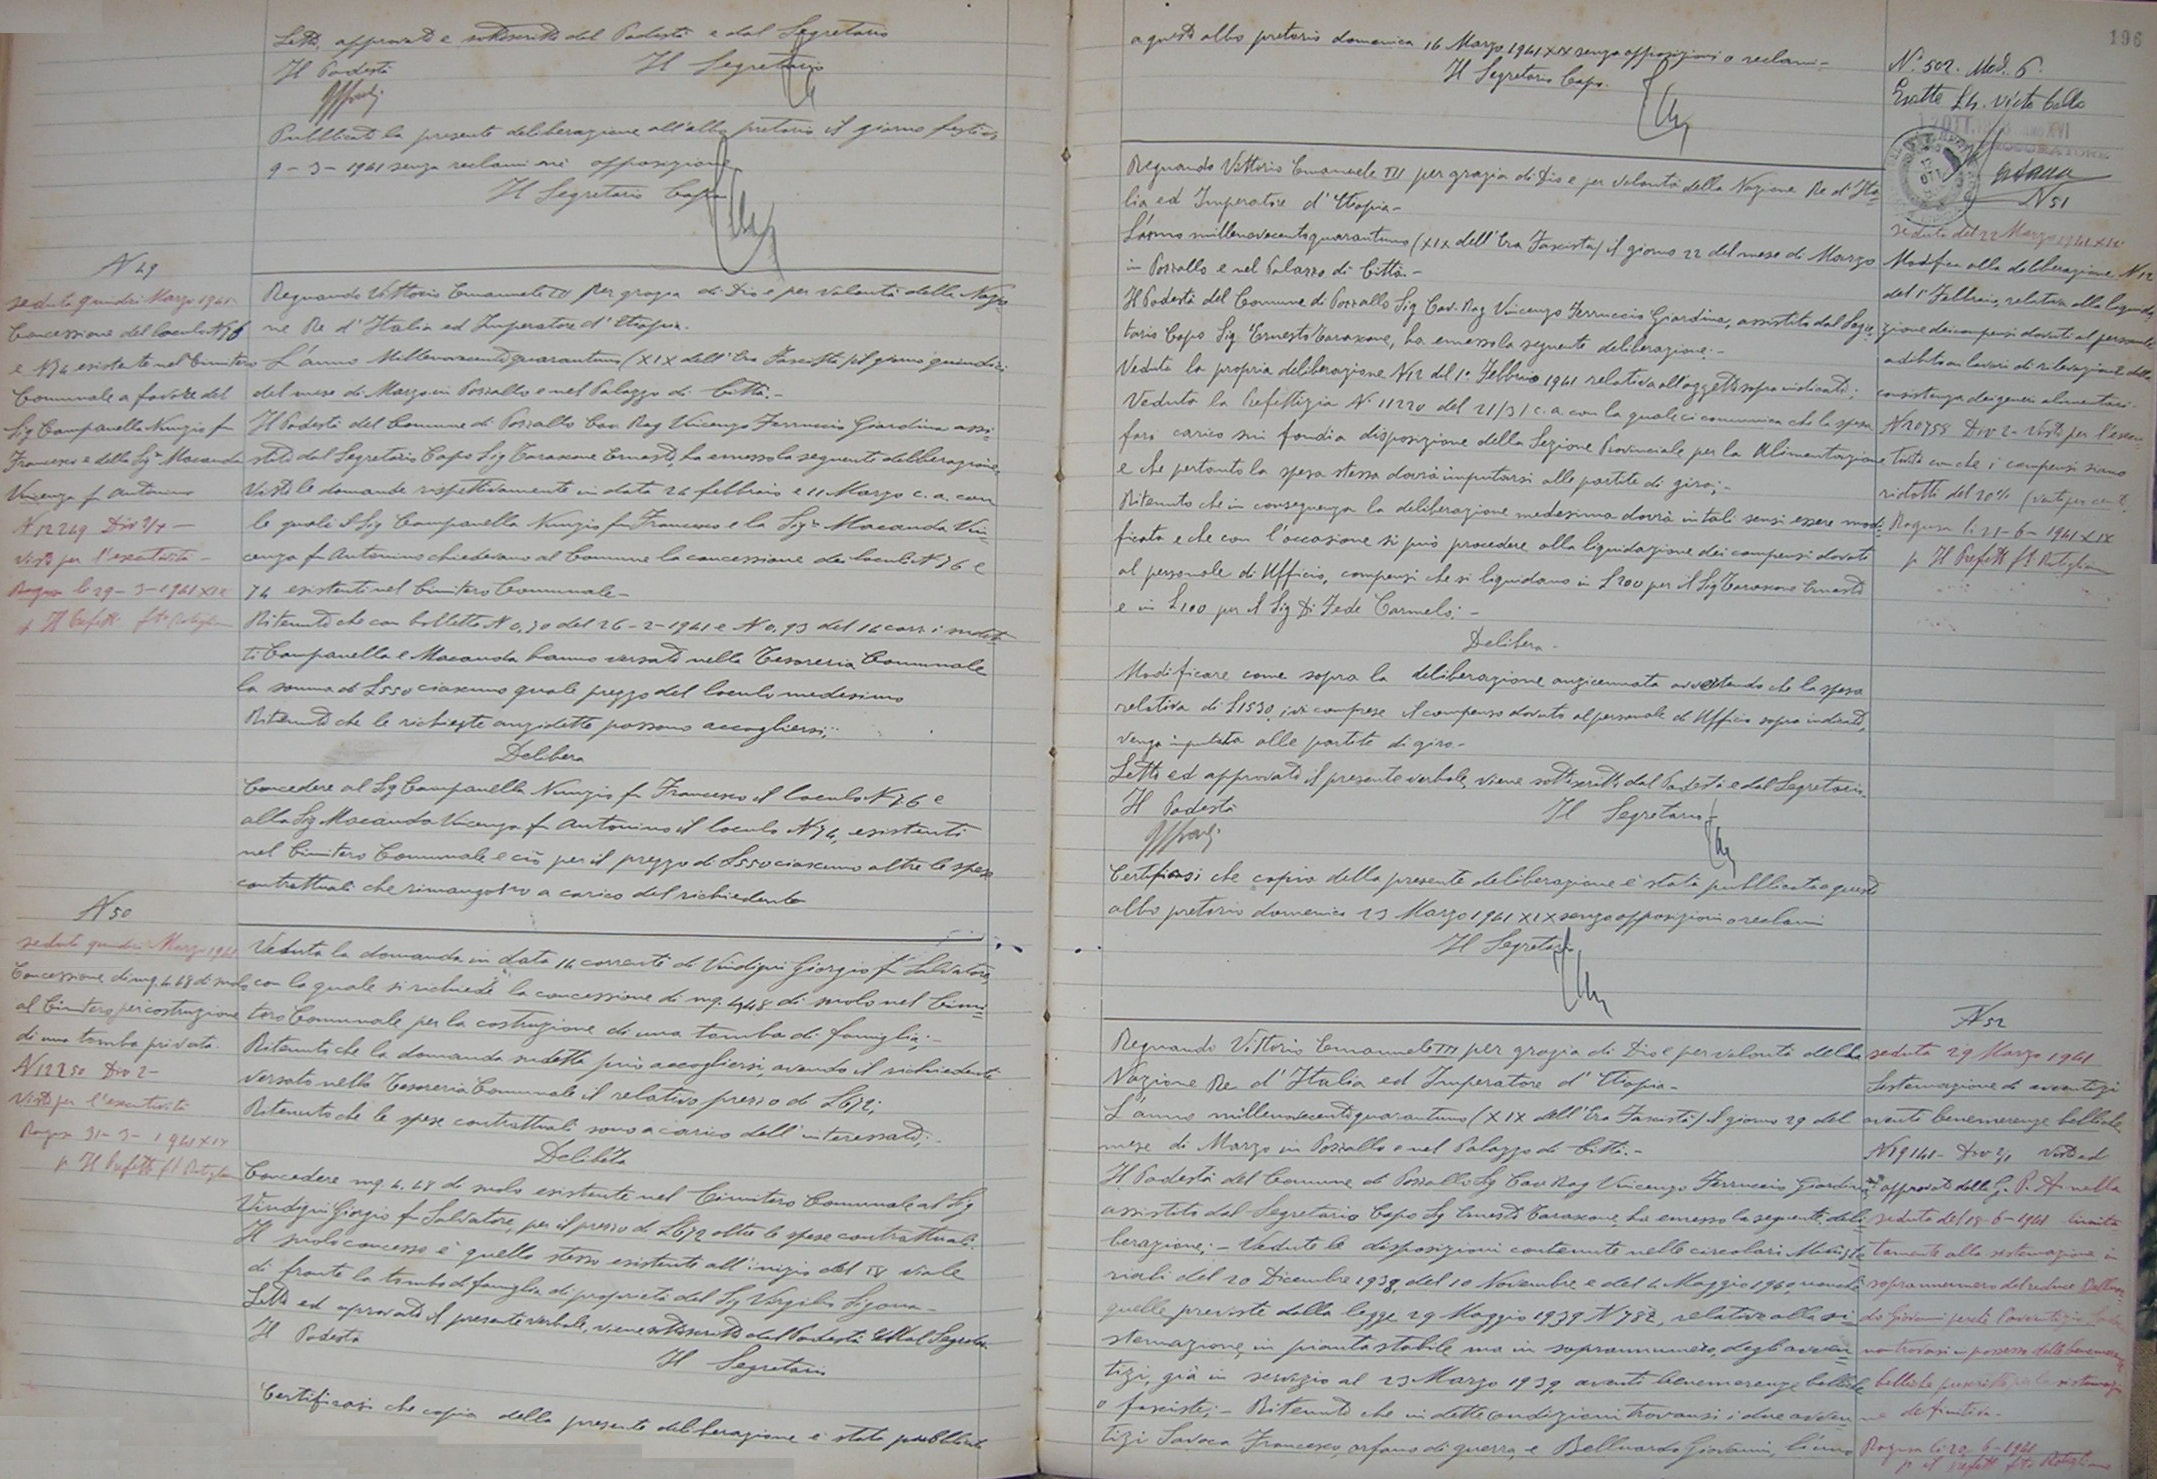 Letto, approvato e sottoscritto dal Podestà e dal Segretario
Il Podestà Il Segretario
Pubblicata la presente deliberazione all'albo pretorio il giorno festivo
9-3-1941 senza reclami nè opposizione
Il Segretario Capo
N 49
seduta quindici Marzo 1941
Concessione del loculo N 76
e N 74 esistente nel Cimitero
Comunale a favore del
Sig Campanella Nunzio fu
Francesco e della Sigra Macauda
Vincenza fu Antonino
N 12249 Div 2/4 —
Visto per l'esecutività -
Ragusa li 29-3-1941 XIX
p Il Prefetto fto Rotigliano
Regnando Vittorio Emanuele III per grazia di Dio e per volontà della Nazio-
ne Re d'Italia ed Imperatore d'Etiopia.
L'anno Millenovecentoquarantuno (XIX dell'Era Fascista) il giorno quindici
del mese di Marzo in Pozzallo e nel Palazzo di Città.-
Il Podestà del Comune di Pozzallo Cav Rag Vincenzo Ferruccio Giardina assi-
stito dal Segretario Capo Sig Tarascone Ernesto, ha emesso la seguente deliberazione,
Viste le domande rispettivamente in data 26 febbraio e 11 Marzo c. a. con
le quali il Sig Campanella Nunzio fu Francesco e la Sigra Macauda Vin-
cenza fu Antonino chiedevano al Comune la concessione dei loculi N 76 e
74 esistenti nel Cimitero Comunale -
Ritenuto che con bollette N 0,70 del 26-2-1941 e N 0,93 del 14 corr. i sudet-
ti Campanella e Macauda hanno versato nella Tesoreria Comunale
la somma di £550 ciascuno quale prezzo del loculo medesimo
Ritenuto che le richieste anzidette possono accogliersi;
Delibera
Concedere al Sig Campanella Nunzio fu Francesco il loculo N 76 e
alla Sig Macauda Vincenza fu Antonino il loculo N 74, esistenti
nel Cimitero Comunale e ciò per il prezzo di £550 ciascuno oltre le spese
contrattuali che rimangono a carico del richiedente
N 50
seduta quindici Marzo 1941
Concessione di mq. 4,48 di suolo
al Cimitero per costruzione
di una tomba privata.
N 12250 Div 2-
Visto per l'esecutività
Ragusa 31-3-1941 XIX
p Il Prefetto fto Rotigliano
Veduta la domanda in data 14 corrente di Vindigni Giorgio fu Salvatore,
con la quale si richiede la concessione di mq. 4,48 di suolo nel Cimi-
tero Comunale per la costruzione di una tomba di famiglia;-
Ritenuto che la domanda sudetta può accogliersi, avendo il richiedente
versato nella Tesoreria Comunale il relativo prezzo di £672;
Ritenuto che le spese contrattuali sono a carico dell'interessato;-
Delibera
Concedere mq. 4,48 di suolo esistente nel Cimitero Comunale al Sig
Vindigni Giorgio fu Salvatore, per il prezzo di £672 oltre le spese contrattuali.
Il suolo concesso è quello stesso esistente all'inizio del IV viale
di fronte la tomba di famiglia di proprietà del Sig Virgilio Sigona -
Letto ed aprovato il presente verbale, viene sottoscritto dal Podestà e dal Segretario.
Il Podestà
Il Segretario
Certificasi che copia della presente deliberazione è stata pubblicata
196
a questo albo pretorio domenica 16 Marzo 1941 XIX senza opposizioni o reclami -
Il Segretario Capo.
N° 502. Mod. 6.
Esatte
N 51
seduta del 22 Marzo 1941 XIX
Modifica alla deliberazione N 12
del 1° Febbraio, relativa alla liquida-
zione dei compensi dovuti al personale
adibito ai lavori di rilevazione della
consistenza dei generi alimentari.
N 20758 Div 2- Visto per l'esecu-
tività con che i compensi siano
ridotti del 20% (venti per cento)
Ragusa li 21-6-1941 XIX
p Il Prefetto fto Rotigliano
Regnando Vittorio Emanuele III per grazia di Dio e per volontà della Nazione Re d'Ita-
lia ed Imperatore d'Etiopia -
L'anno millenovecentoquarantuno (XIX dell'Era Fascista) il giorno 22 del mese di Marzo
in Pozzallo e nel Palazzo di Città.-
Il Podestà del Comune di Pozzallo Sig Cav. Rag Vincenzo Ferruccio Giardina, assistito dal Segre-
tario Capo Sig. Ernesto Tarascone, ha emesso la seguente deliberazione:-
Veduta la propria deliberazione N12 del 1° Febbraio 1941 relativa all'oggetto sopra indicato;
Veduta la Prefettizia N. 11220 del 21/3/ c. a. con la quale ci comunica che la spesa
farà carico sui fondi a disposizione della Sezione Provinciale per la Alimentazione
e che pertanto la spesa stessa dovrà imputarsi alle partite di giro;-
Ritenuto che in conseguenza la deliberazione medesima dovrà in tali sensi essere modi-
ficata e che con l'occasione si può procedere alla liquidazione dei compensi dovuti
al personale di Ufficio, compensi che si liquidano in £200 per il Sig Tarascone Ernesto
e in £100 per il Sig Di Fede Carmelo;-
Delibera-
Modificare come sopra la deliberazione anzicennata avvertendo che la spesa
relativa di £1530, ivi comprese il compenso dovuto al personale di Ufficio sopra indicato,
venga imputata alle partite di giro-
Letto ed approvato il presente verbale, viene sottoscritto dal Podestà e dal Segretario.
Il Podestà Il Segretario
Certificasi che copia della presente deliberazione è stata pubblicata a questo
albo pretorio domenica 23 Marzo 1941 XIX senza opposizioni o reclami
Il Segretario
N 52
seduta 29 Marzo 1941
Sistemazione di avventizi
aventi benemerenze belliche
N 19141- Div 2/1 Visto ed
approvato dalla G. P. A. nella
seduta del 18-6-1941 limita-
tamente alla sistemazione in
soprannumero del reduce Belluar-
do Giovanni perchè l'avventizio
non trovasi in possesso delle benemerenze
belliche per la sistemazio-
ne definitiva-
Ragusa li 20-6-1941
p il Prefetto fto Rotigliano
Regnando Vittorio Emanuele III per grazia di Dio e per volontà della
Nazione Re d'Italia ed Imperatore d'Etiopia-
L'anno millenovecentoquarantuno (XIX dell'Era Fascista) il giorno 29 del
mese di Marzo in Pozzallo e nel Palazzo di Città.-
Il Podestà del Comune di Pozzallo Sig Cav. Rag Vincenzo Ferruccio Giardina,
assistito dal Segretario Capo Sig Ernesto Tarascone ha emesso la seguente deli-
berazione;- Vedute le disposizioni contenute nelle circolari Ministe-
riali del 20 Dicembre 1939, del 10 Novembre e del 4 Maggio 1940, nonchè
quelle previste dalla legge 29 Maggio 1939 N 782, relative alla si-
stemazione, in pianta stabile ma in soprannumero, degli avven-
tizi, già in servizio al 23 Marzo 1939 aventi benemerenze belliche
o fasciste;- Ritenuto che in dette condizioni trovansi i due avven-
tizi Savoca Francesco, orfano di guerra, e Belluardo Giovanni, l'uno